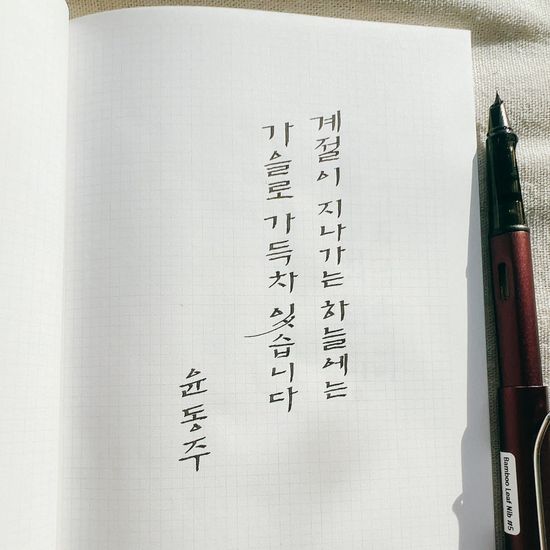 계절이 지나가는 하늘에는
가을로 가득차 있습니다
윤동주
Bamboo Leaf Nib #5